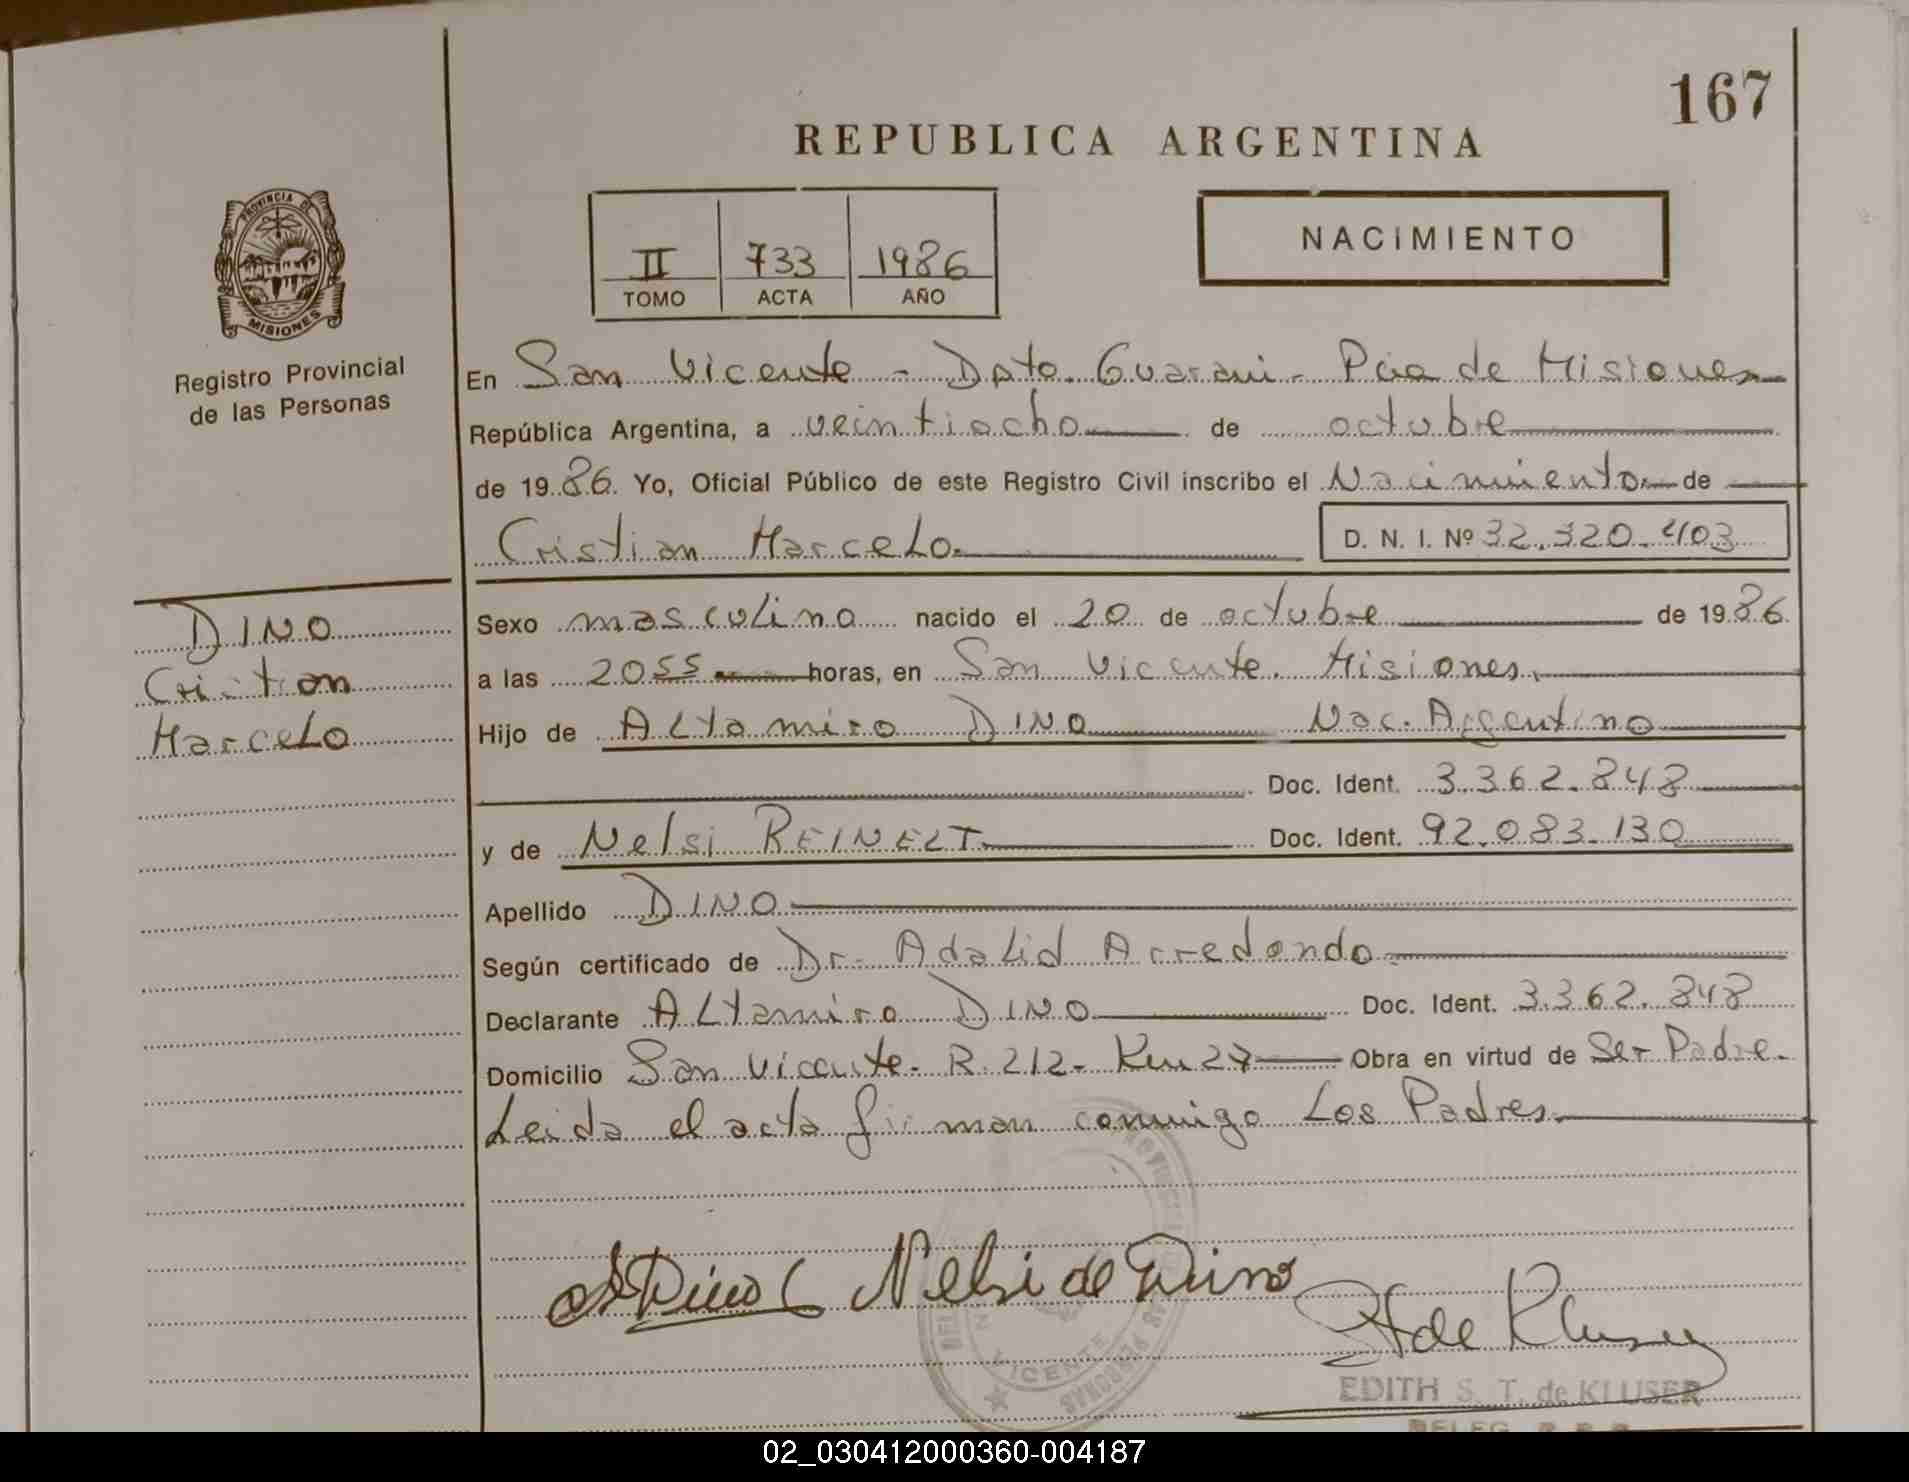 167
REPUBLICA ARGENTINA
PROVINCIA DE
MISIONES
II 733 1986
TOMO ACTA AÑO
NACIMIENTO
Registro Provincial
de las Personas
En San Vicente - Dpto. Guarani - Pcia de Misiones
República Argentina, a veintiocho de octubre
de 1986. Yo, Oficial Público de este Registro Civil inscribo el Nacimiento de
Cristian Marcelo. D. N. I. Nº 32.320.403
DINO
Cristian
Marcelo
Sexo masculino nacido el 20 de octubre de 1986
a las 2055 horas, en San Vicente. Misiones.
Hijo de ALtamiro DINO Nac. Argentino
Doc. Ident. 3.362.848
y de Nelsi REINELT Doc. Ident. 92.083.130
Apellido DINO
Según certificado de Dr. Adalid Arredondo.
Declarante ALtamiro DINO Doc. Ident. 3.362.848
Domicilio San Vicente. R. 212. Km 27 Obra en virtud de Ser Padre.
Leida el acta firman conmigo Los Padres.
Dino Nelsi de Dino
de Kluser
VICENTE
PERSONAS
EDITH S. T. de KLUSER
DELEG.
02_030412000360-004187